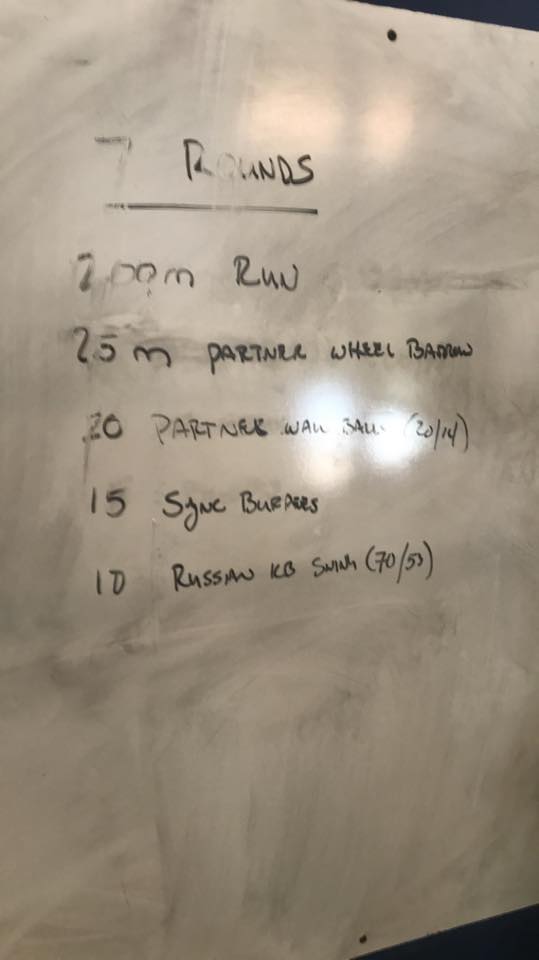 7 ROUNDS
200m RUN
25m PARTNER WHEEL BARROW
20 PARTNER WALL BALL (20/14)
15 SYNC BURPEES
10 RUSSIAN KB SWING (70/53)